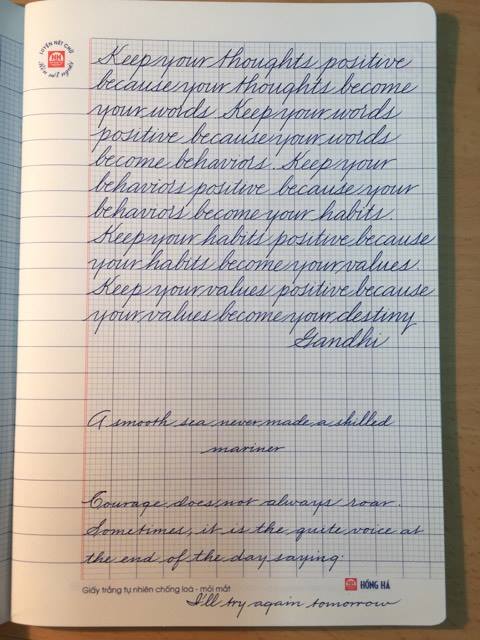 LUYỆN NÉT CHỮ
Keep your thoughts positive
because your thoughts become
your words. Keep your words
positive because your words
become behaviors. Keep your
behaviors positive because your
behaviors become your habits.
Keep your habits positive because
your habits become your values.
Keep your values positive because
your values become your destiny
Gandhi
A smooth sea never made a skilled
mariner
Courage does not always roar.
Sometimes, it is the quite voice at
the end of the day saying.
Giấy trắng tự nhiên chống loá - mỏi mắt
HỒNG HÀ
I'll try again tomorrow